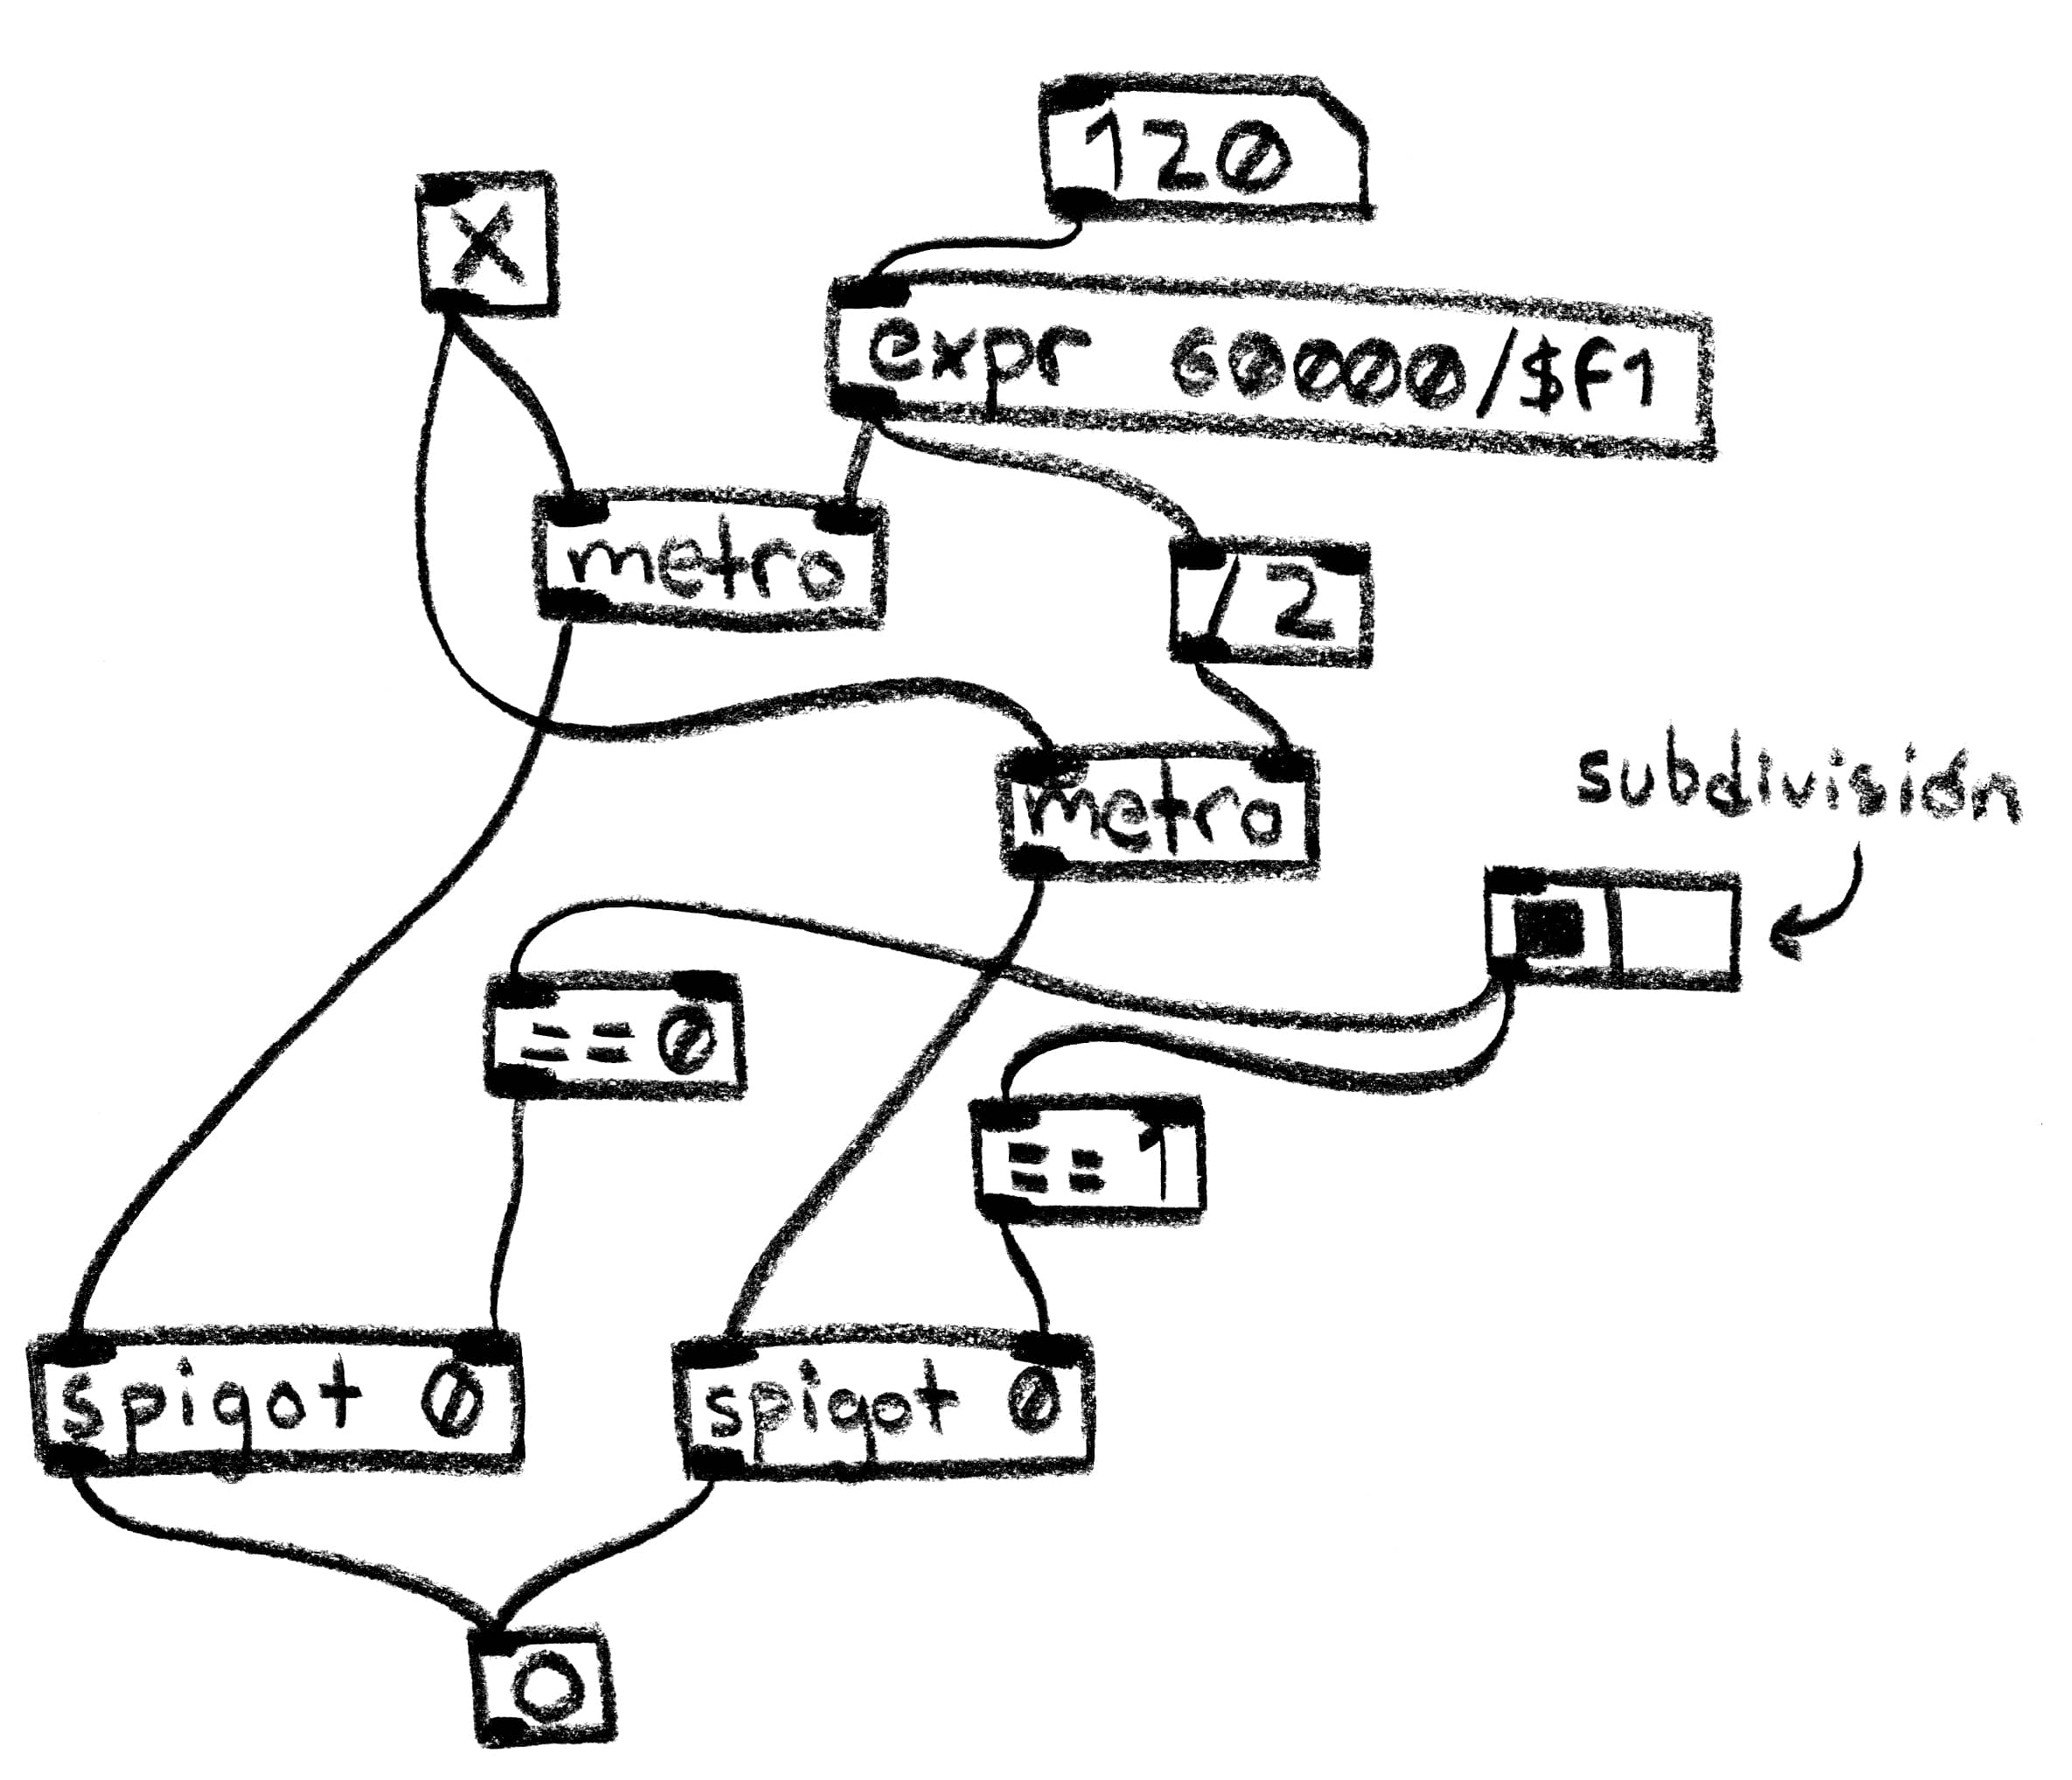 120
X
expr 60000/$f1
metro
/ 2
metro
subdivisión
== 0
== 1
spigot 0
spigot 0